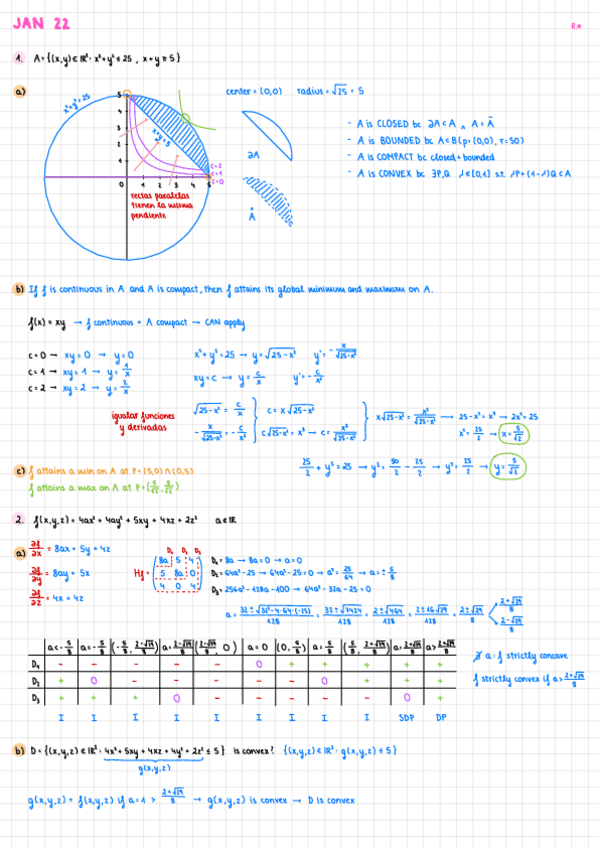 JAN 22
R.★
1. A={(x,y)∈ℝ²: x²+y² ≤ 25 , x+y ≥ 5}
a)
x²+y²=25
x+y=5
5
4
3
2
1
0 1 2 3 4 5
c=2
c=1
c=0
rectas paralelas
tienen la misma
pendiente
center = (0,0) radius = √25 = 5
∂A
Å
- A is CLOSED bc ∂A⊂A
- A is BOUNDED bc A⊂B(p=(0,0), r=50)
- A is COMPACT bc closed + bounded
- A is CONVEX bc ∃P,Q λ∈[0,1] s.t. λP+(1-λ)Q⊂A
b) If f is continuous in A and A is compact, then f attains its global minimum and maximum on A.
f(x) = xy → f continuous + A compact → CAN apply
c=0 → xy=0 → y=0
c=1 → xy=1 → y=1/x
c=2 → xy=2 → y=2/x
x²+y²=25 → y=√25-x² y'= -x/√25-x²
xy=c → y=c/x y'=-c/x²
igualar funciones
y derivadas
√25-x² = c/x } c = x√25-x²
-x/√25-x² = -c/x² } c√25-x² = x³ → c = x³/√25-x²
x√25-x² = x³/√25-x² → 25-x² = x² → 2x²=25
x² = 25/2 → x=5/√2
25/2 + y² = 25 → y² = 50/2 - 25/2 → y² = 25/2 → y=5/√2
c) f attains a min on A at P=(5,0) ∩ (0,5)
f attains a max on A at P=(5/√2, 5/√2)
2. f(x,y,z) = 4ax² + 4ay² + 5xy + 4xz + 2z² a∈ℝ
a) ∂f/∂x = 8ax + 5y + 4z
∂f/∂y = 8ay + 5x
∂f/∂z = 4x + 4z
D₁ D₂ D₃
Hf =
8a 5 4
5 8a 0
4 0 4
D₁ = 8a → 8a=0 → a=0
D₂ = 64a²-25 → 64a²-25=0 → a²=25/64 → a=±5/8
D₃ = 256a²-128a-100 → 64a²-32a-25=0
a = 32±√32²-4·64·(-25)/128 = 32±√7424/128 = 2±√464/128 = 2±16√29/128 = 2±√29/8
2+√29/8
2-√29/8
a<-5/8 a=-5/8 (-5/8, 2-√29/8) a=2-√29/8 (2-√29/8, 0) a=0 (0,5/8) a=5/8 (5/8, 2+√29/8) a=2+√29/8 a>2+√29/8
D₁ - - - - - 0 + + + + +
D₂ + 0 - - - - - 0 + + +
D₃ + + + 0 - - - - - 0 +
I I I I I I I I I SDP DP
∄ a: f strictly concave
f strictly convex if a>2+√29/8
b) D={(x,y,z)∈ℝ³: 4x²+5xy+4xz+4y²+2z² ≤ 5} is convex? {(x,y,z)∈ℝ³: g(x,y,z) ≤ 5}
g(x,y,z)
g(x,y,z) = f(x,y,z) if a=1 > 2+√29/8 → g(x,y,z) is convex → D is convex